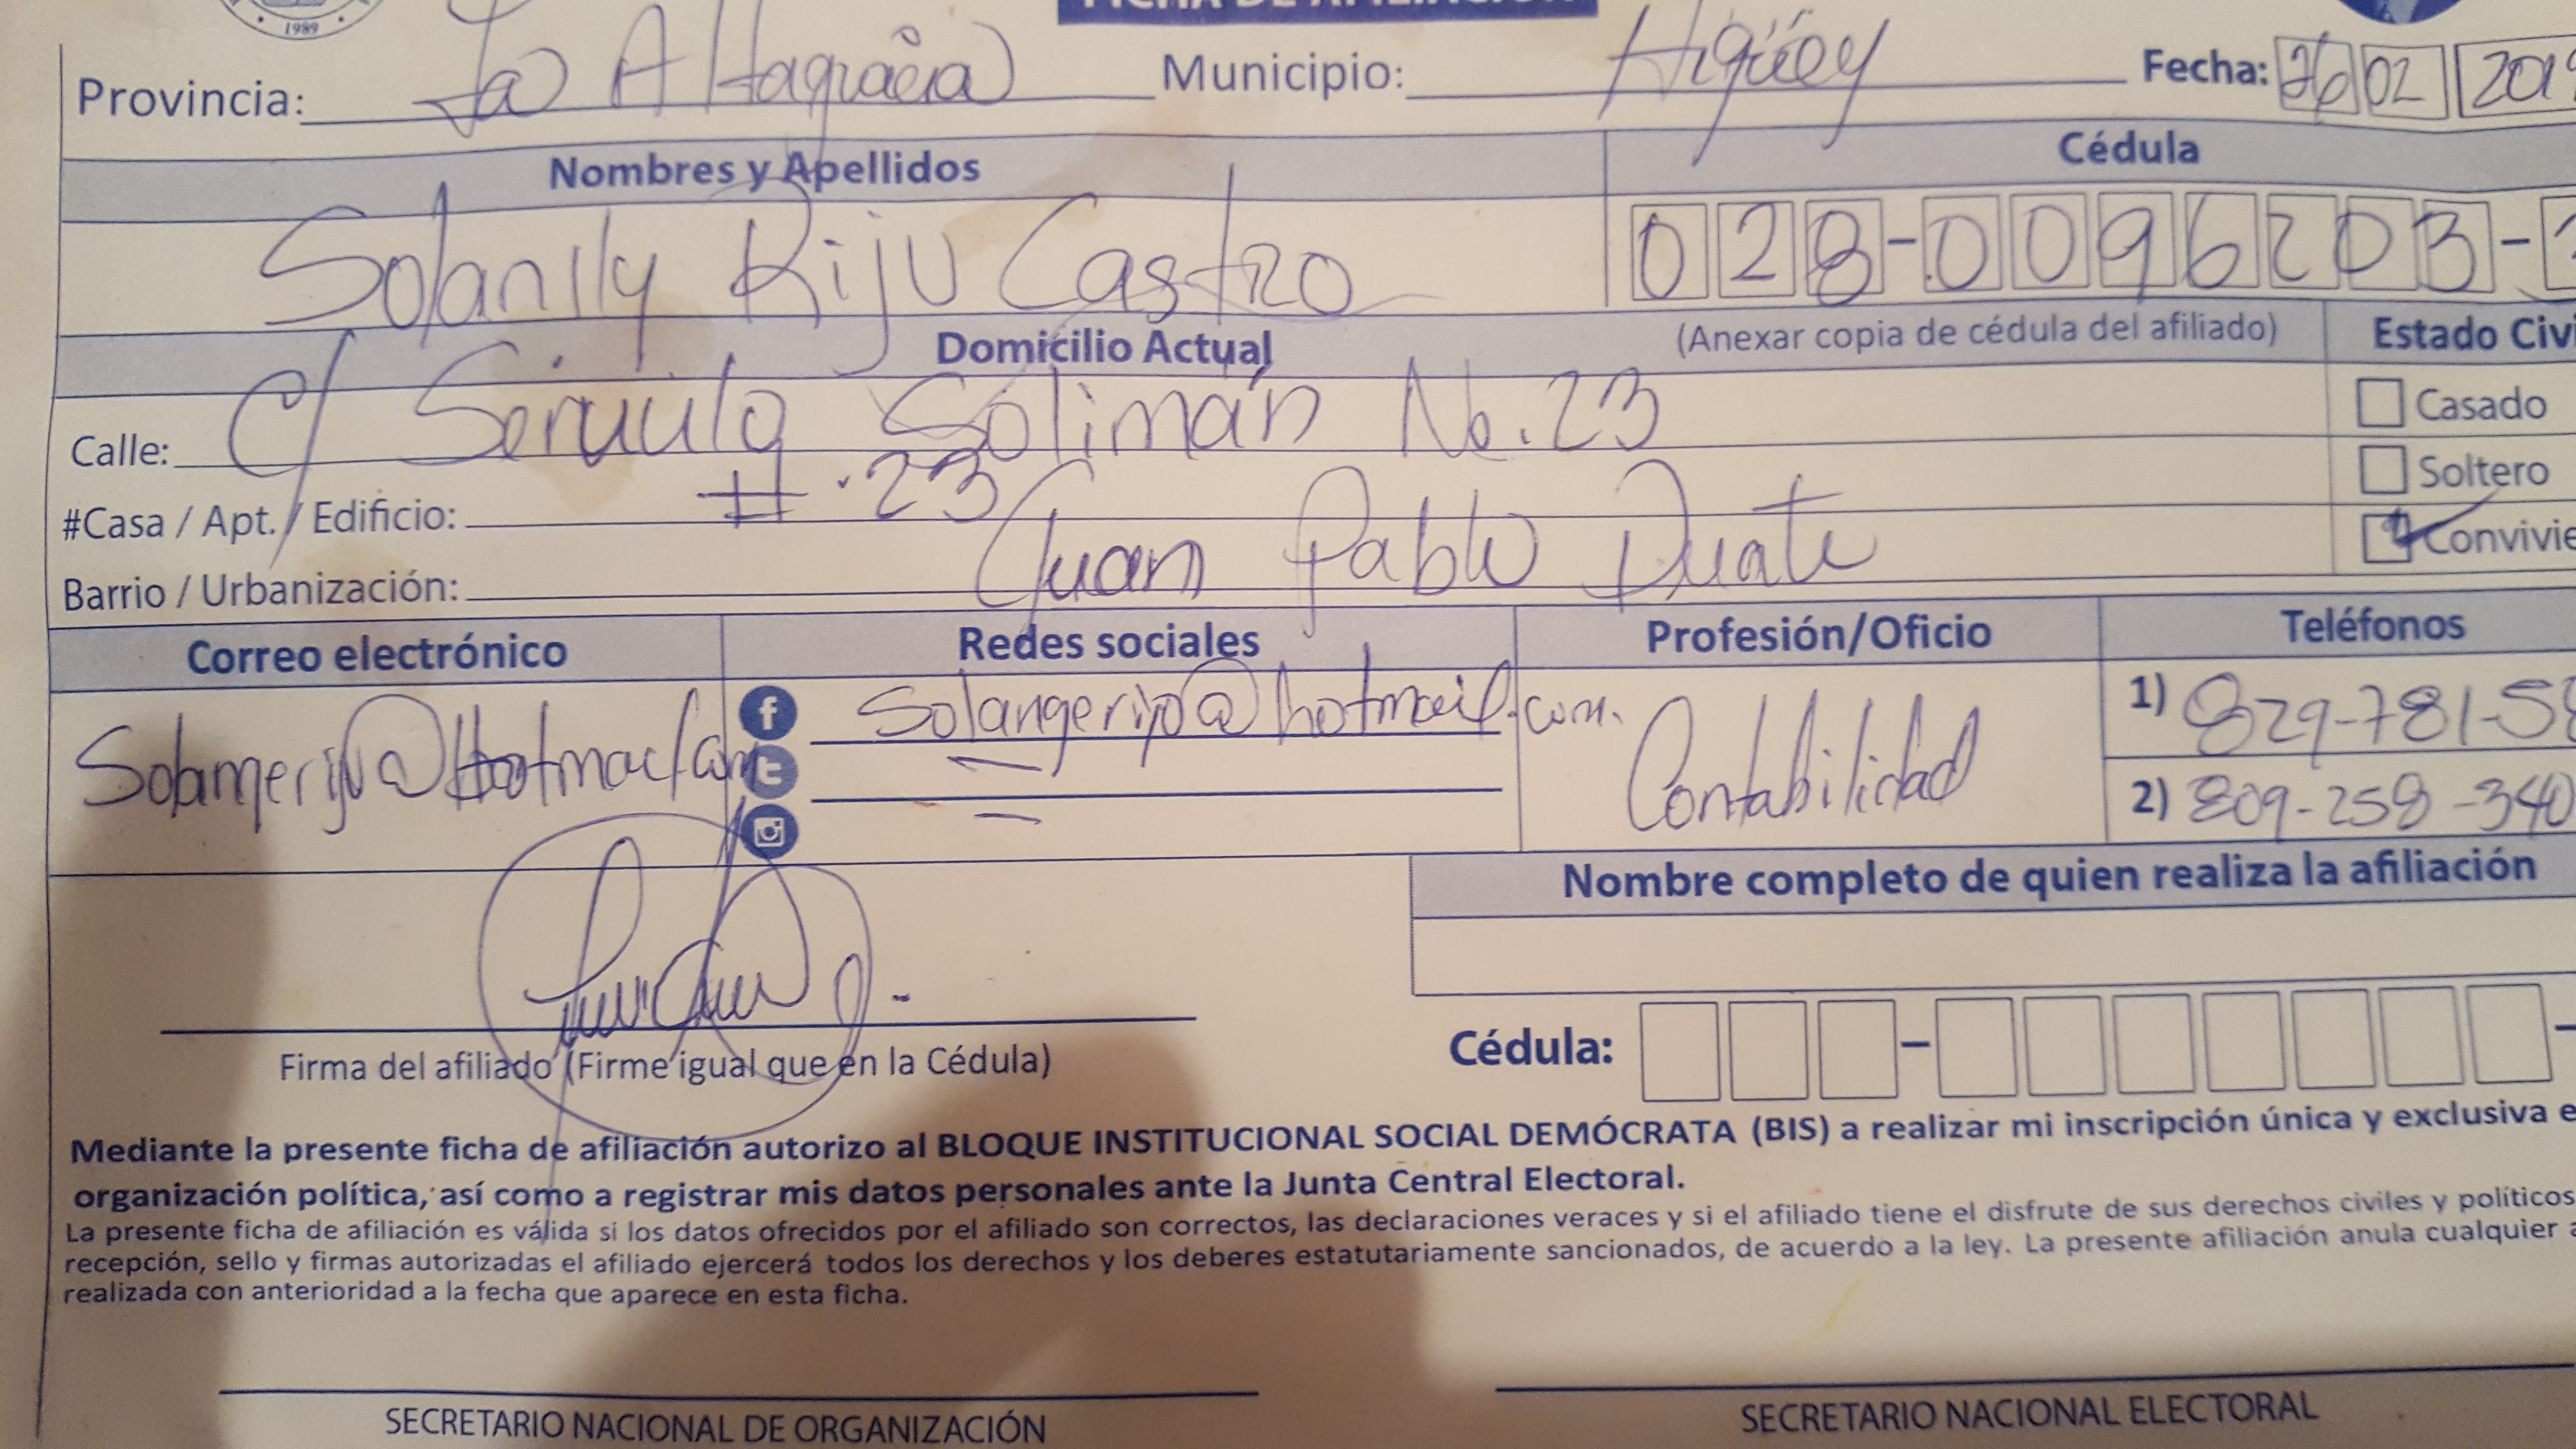 1989
FICHA DE AFILIACIÓN
Provincia: La Altagracia Municipio: Higüey Fecha: 26 02 2019
Nombres y Apellidos Cédula
Solanlly Rijo Castro 028-0096203-
Domicilio Actual (Anexar copia de cédula del afiliado) Estado Civi
Calle: C/ Serviulo Solimán No. 23 Casado
#Casa / Apt. / Edificio: #.23 Soltero
Barrio / Urbanización: Juan Pablo Duate Convivie
Correo electrónico Redes sociales Profesión/Oficio Teléfonos
Solangerijo@Hotmail.com solangerijo@hotmail.com. Contabilidad 1) 829-781-58
2) 809-258-340
Nombre completo de quien realiza la afiliación
Firma del afiliado (Firme igual que en la Cédula) Cédula:
Mediante la presente ficha de afiliación autorizo al BLOQUE INSTITUCIONAL SOCIAL DEMÓCRATA (BIS) a realizar mi inscripción única y exclusiva e
organización política, así como a registrar mis datos personales ante la Junta Central Electoral.
La presente ficha de afiliación es válida si los datos ofrecidos por el afiliado son correctos, las declaraciones veraces y si el afiliado tiene el disfrute de sus derechos civiles y políticos
recepción, sello y firmas autorizadas el afiliado ejercerá todos los derechos y los deberes estatutariamente sancionados, de acuerdo a la ley. La presente afiliación anula cualquier a
realizada con anterioridad a la fecha que aparece en esta ficha.
SECRETARIO NACIONAL DE ORGANIZACIÓN SECRETARIO NACIONAL ELECTORAL